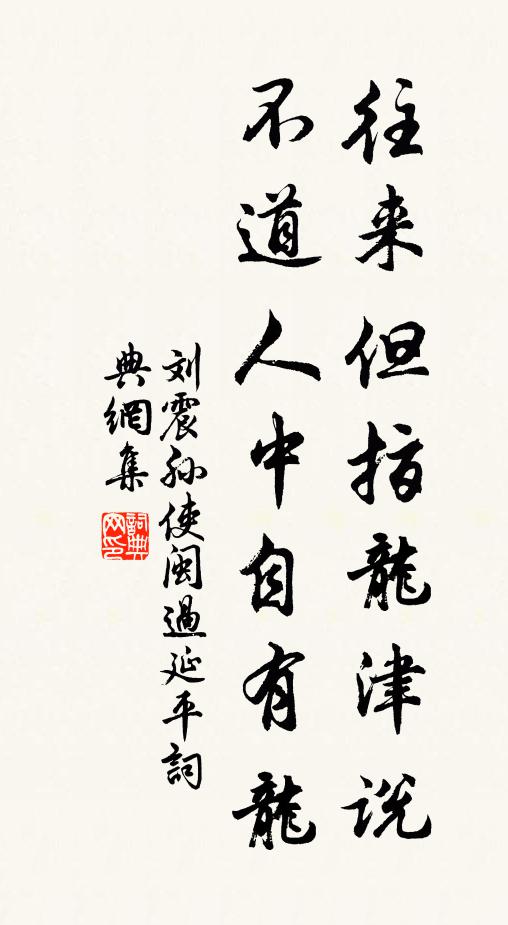 往来但指龍津说
不道人中自有龍
刘震孙使闽過延平詞
典網集
詞典
网印